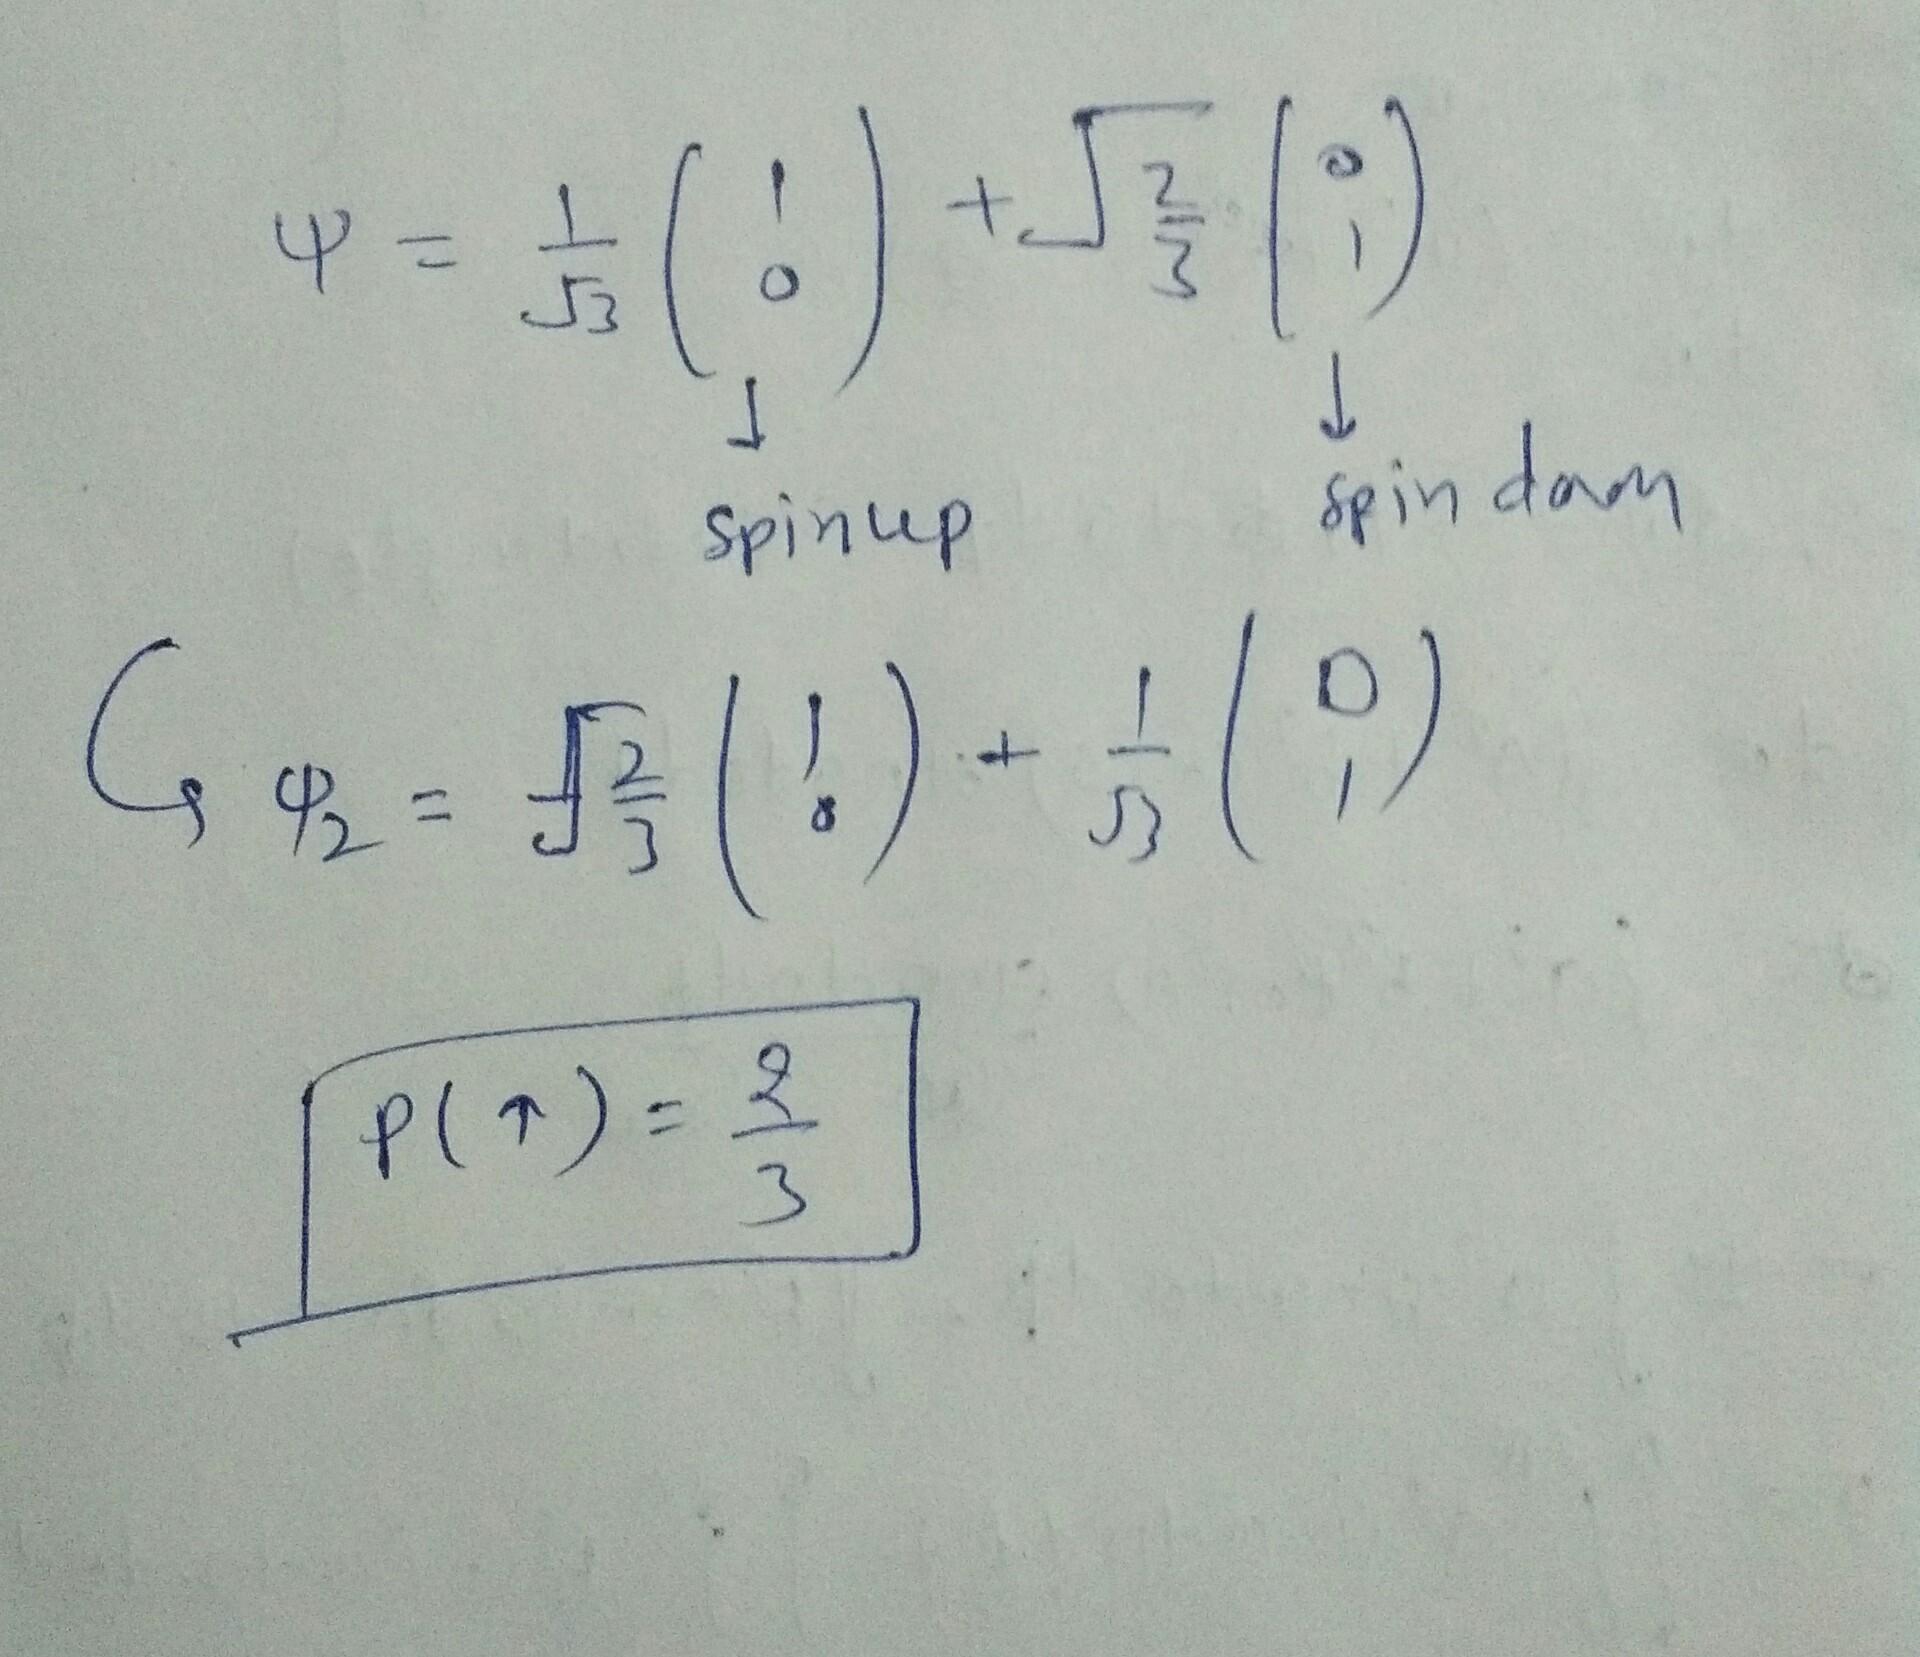 ψ = 1/√3 (1 0) + √2/3 (0 1)
↓ ↓
spin up spin down
↪ ψ2 = √2/3 (1 0) + 1/√3 (0 1)
P(↑) = 2/3